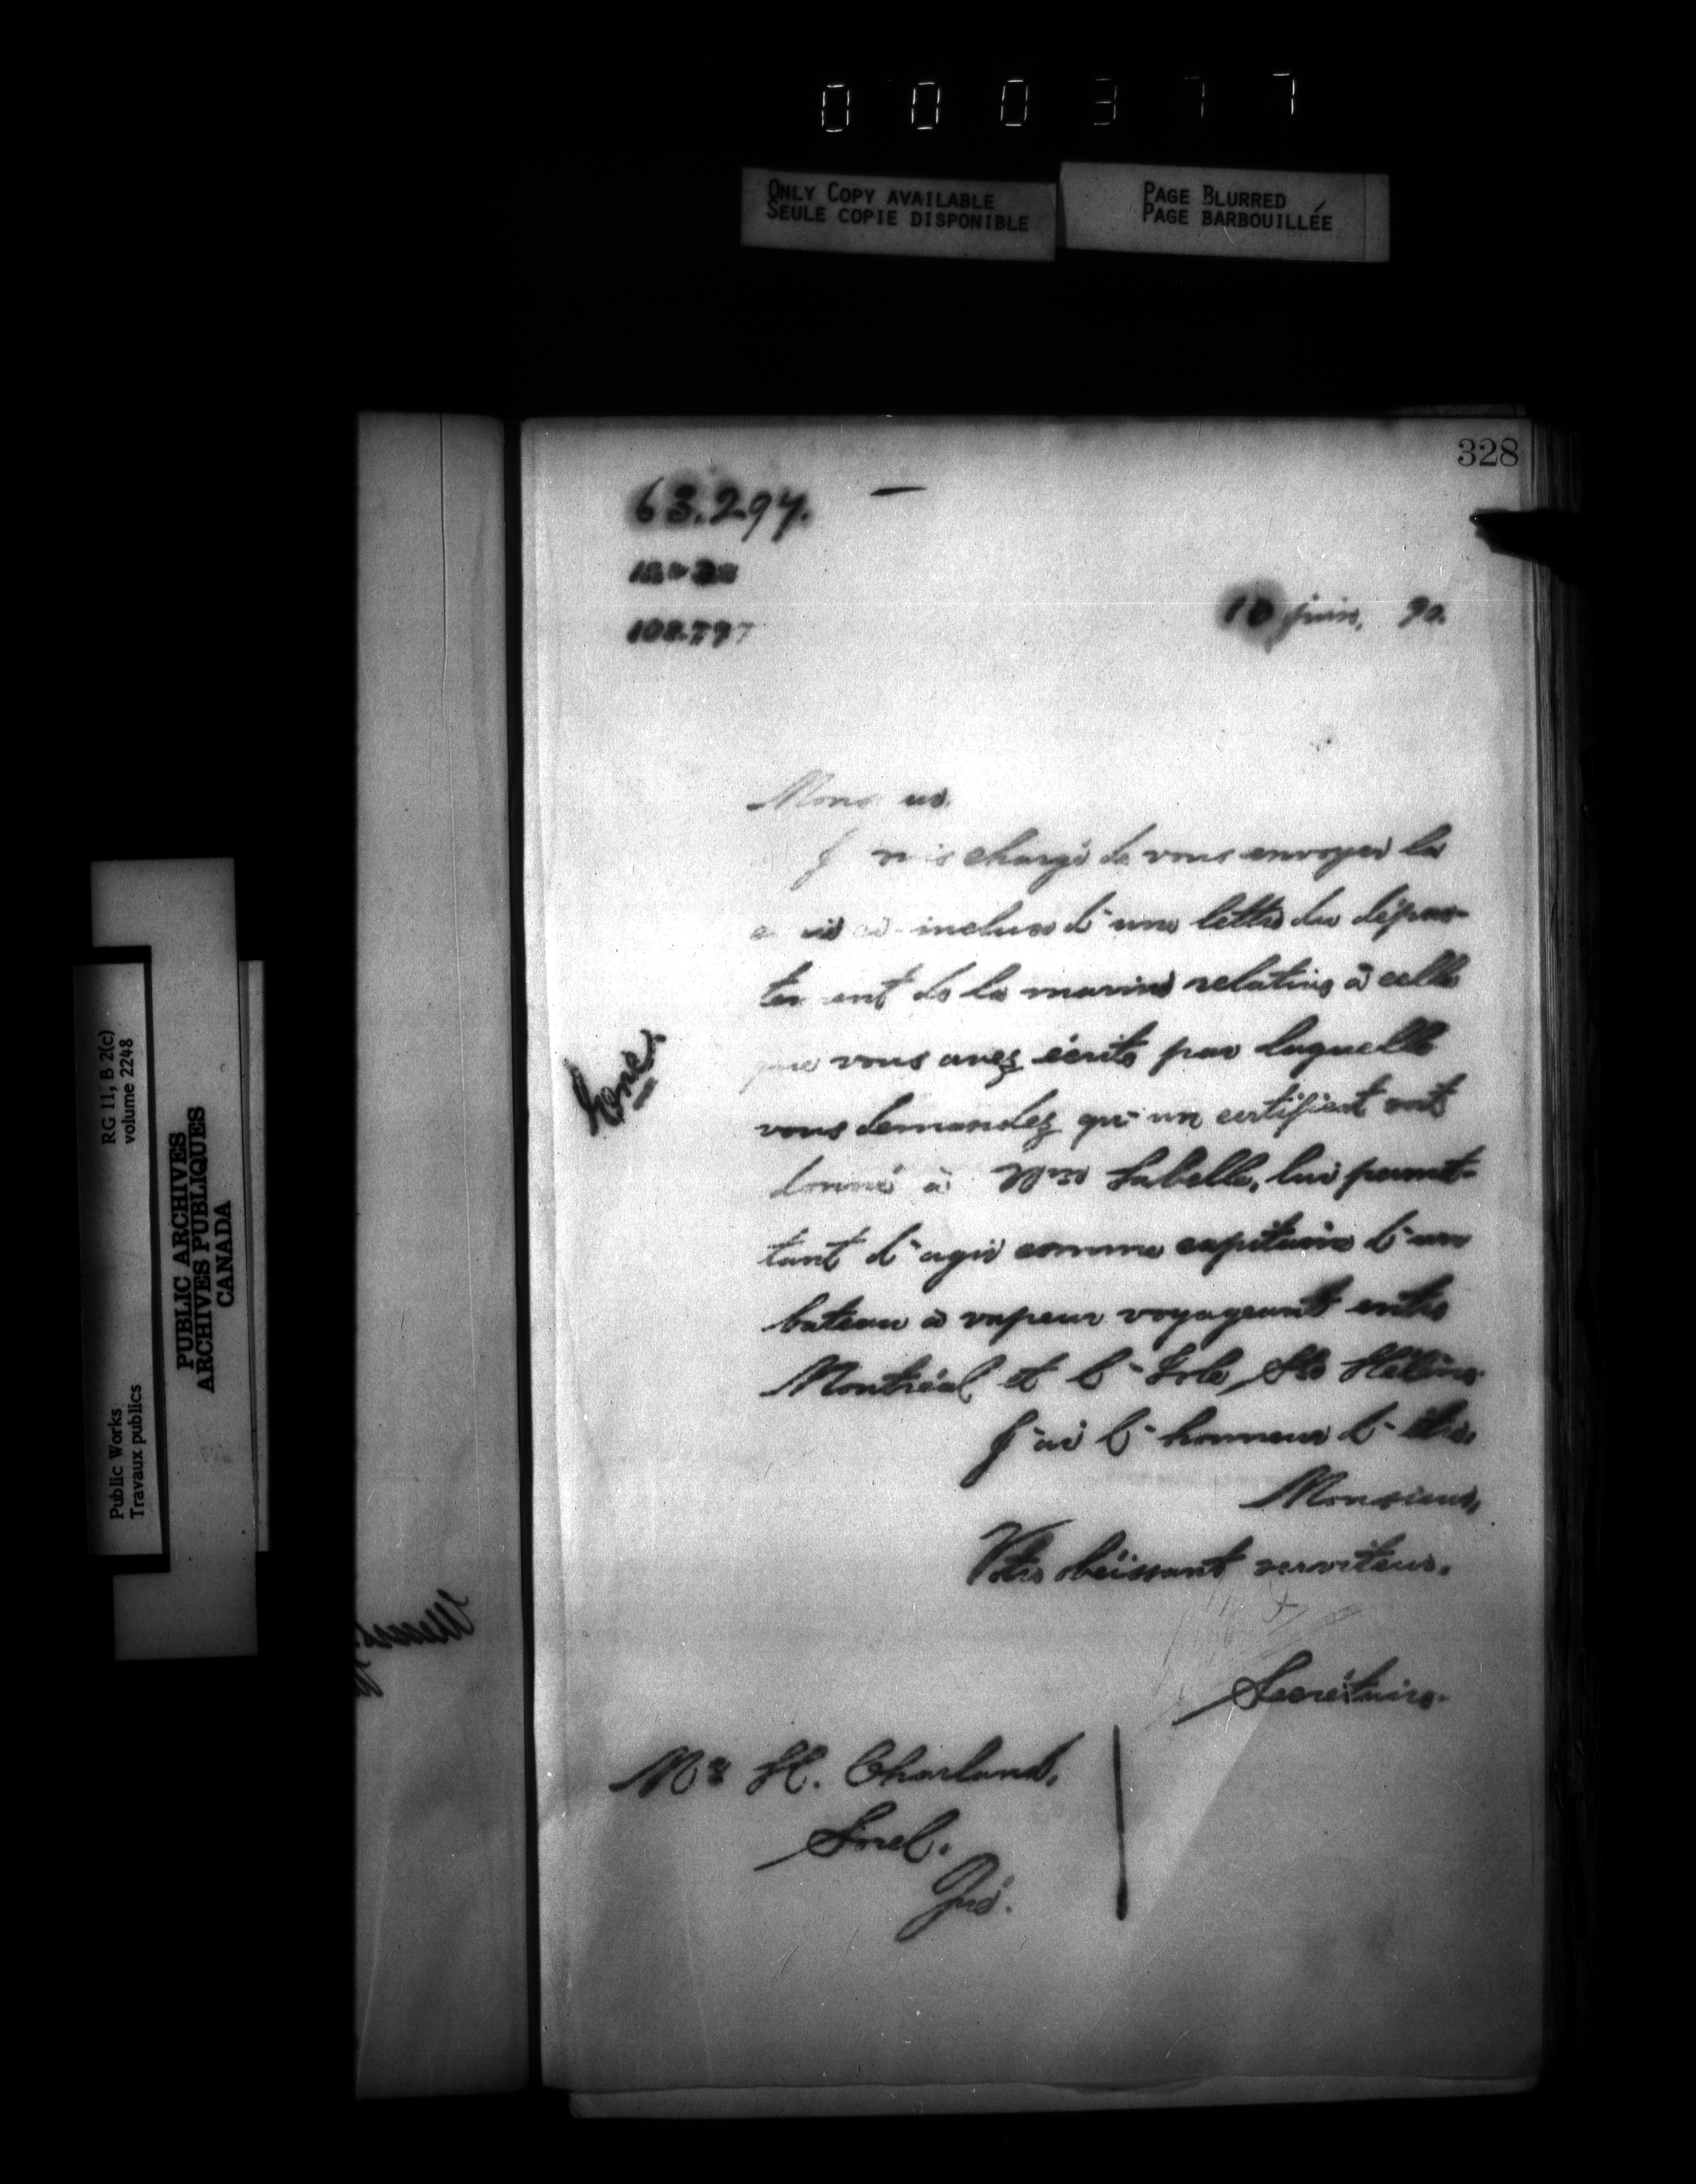 000377
ONLY COPY AVAILABLE
SEULE COPIE DISPONIBLE
PAGE BLURRED
PAGE BARBOUILLÉE
328
63.294.
10 juin, 90.
Monsieur
Je suis chargé de vous envoyer la
copie ci-incluse d'une lettre du dépar-
tement de la marine relative à celle
que vous avez écrite par laquelle
vous demandez qu'un certificat soit
donné à Labelle, lui permet-
tant d'agir comme capitaine d'un
bateau à vapeur voyageant entre
Montréal et l'Isle Ste Hélène.
J'ai l'honneur d'être,
Monsieur,
Votre obéissant serviteur.
Secrétaire.
Mr H. Charland,
Sorel.
Qué.
RG 11, B 2(c)
volume 2248
PUBLIC ARCHIVES
ARCHIVES PUBLIQUES
CANADA
Public Works
Travaux publics